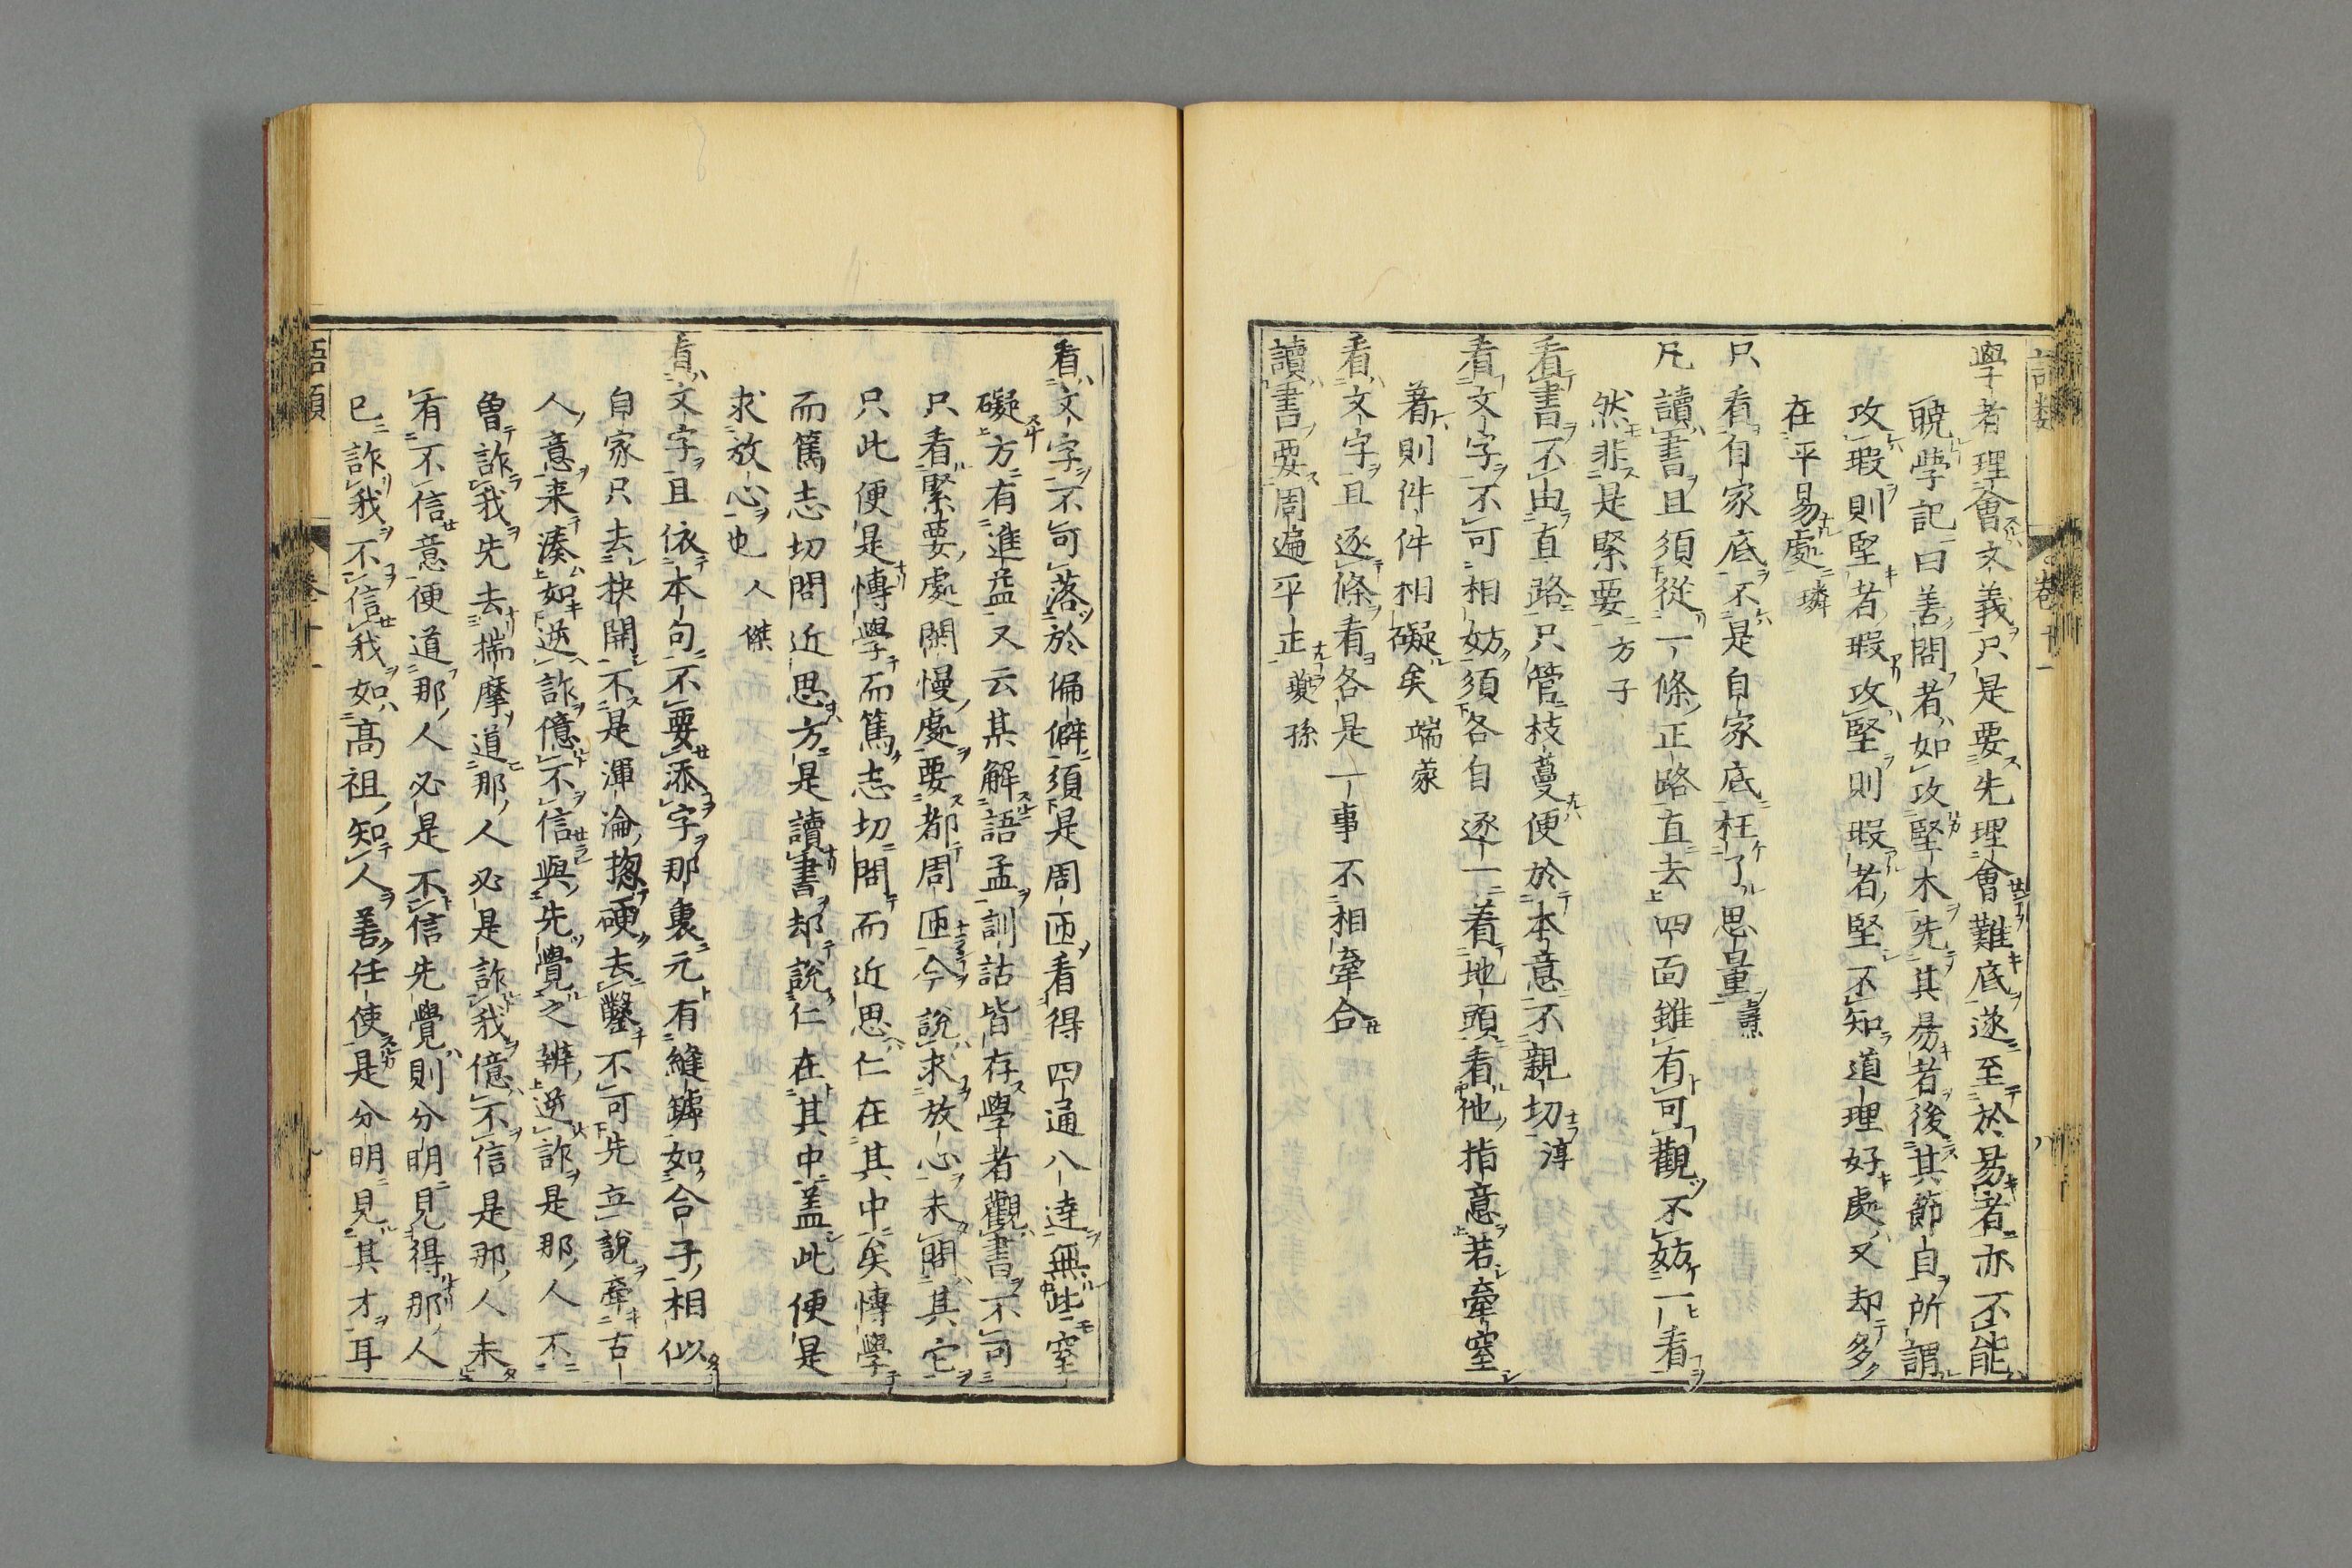 學者理會文義只是要先理會難底遂至於易者亦不能
曉學記曰善問者如攻堅木先其易者後其節目所謂
攻瑕則堅者瑕攻堅則瑕者堅不知道理好處又却多
在平易處 璘
只看自家底不是自家底枉了思量 燾
凡讀書且須從一條正路直去四面雖有可觀不妨一看
然非是緊要 方子
看書不由直路只管枝蔓便於本意不親切 淳
看文字不可相妨須各自逐一着地頭看他指意若牽窒
着則件件相礙矣 端蒙
看文字且逐條看各是一事不相牽合
讀書要周遍平正 夔孫
看文字不可落於偏僻須是周匝看得四通八達無些窒
礙方有進益又云某解語孟訓詁皆存學者觀書不可
只看緊要處閑慢處要都周匝今說求放心未問其它
只此便是博學而篤志切問而近思仁在其中矣博學
而篤志切問近思方是讀書却說仁在其中蓋此便是
求放心也 人傑
看文字且依本句不要添字那裏元有縫罅如合子相似
自家只去抉開不是渾淪揔硬去鑿不可先立說牽古
人意来湊如逆詐億不信與先覺之辨逆詐是那人不
曾詐我先去揣摩道那人必是詐我億不信是那人未
有不信意便道那人必是不信先覺則分明見得那人
已詐我不信我如高祖知人善任使是分明見其才耳
語類
卷十一